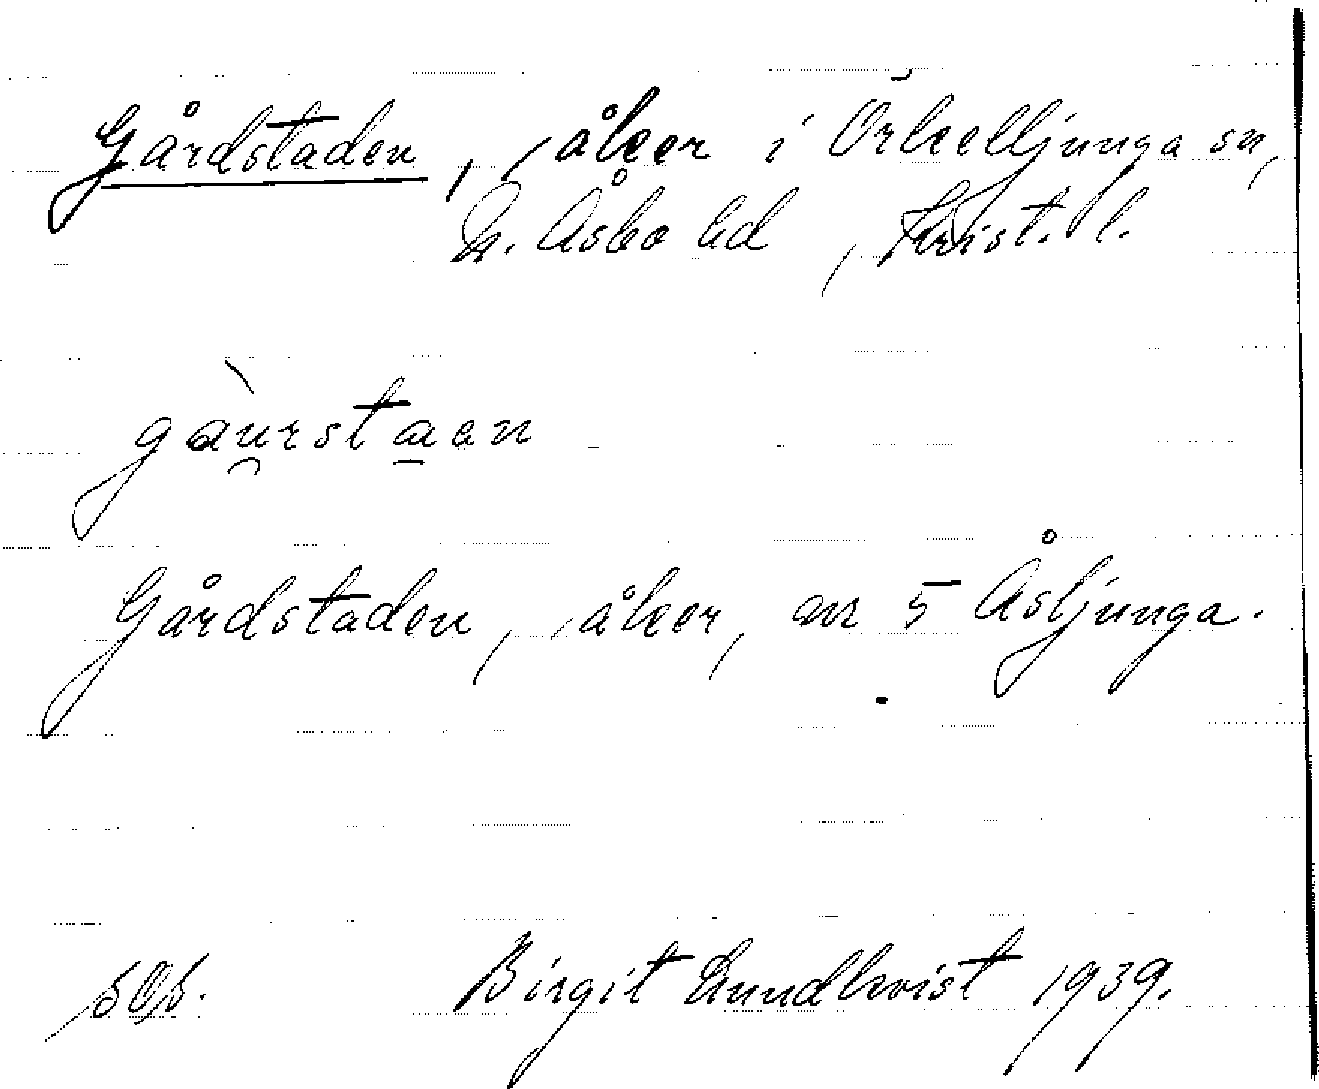 Gårdstaden, åker i Örkelljunga sn,
N. Åsbo hd, Krist. l.
gàu̯rsta̱en
Gårdstaden, åker, nr 5 Åsljunga.
Birgit Lundkvist 1939.